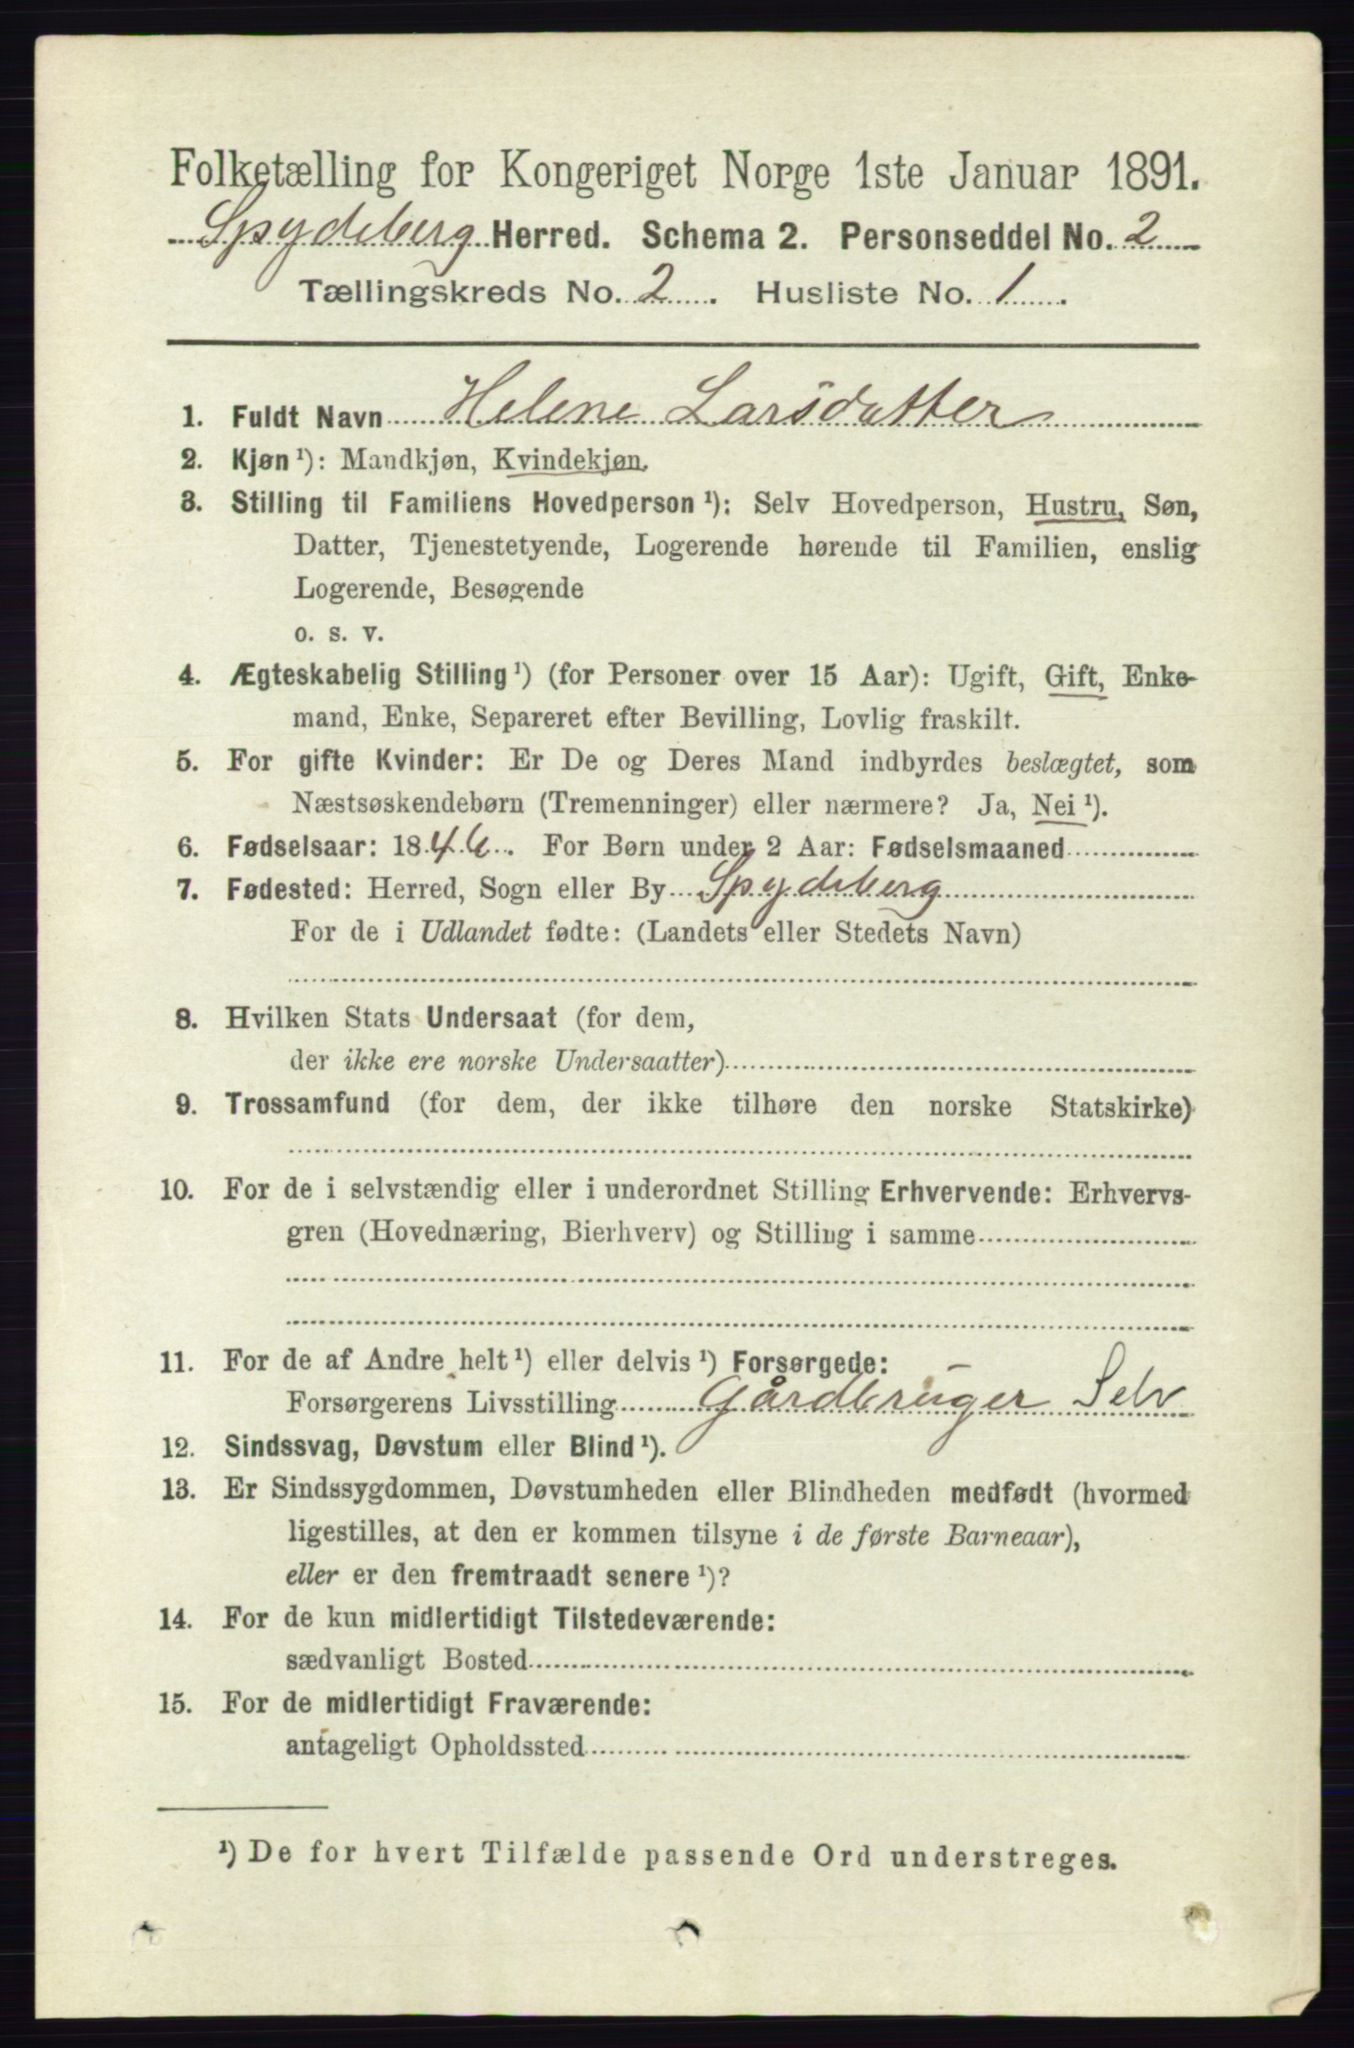 Folketælling for Kongeriget Norge 1ste Januar 1891.
Spydeberg Herred. Schema 2. Personseddel No. 2
Tællingskreds No. 2. Husliste No. 1.
1. Fuldt Navn Helene Larsdatter
2. Kjøn ¹): Mandkjøn, Kvindekjøn.
3. Stilling til Familiens Hovedperson ¹): Selv Hovedperson, Hustru, Søn,
Datter, Tjenestetyende, Logerende hørende til Familien, enslig
Logerende, Besøgende
o. s. v.
4. Ægteskabelig Stilling ¹) (for Personer over 15 Aar): Ugift, Gift, Enke-
mand, Enke, Separeret efter Bevilling, Lovlig fraskilt.
5. For gifte Kvinder: Er De og Deres Mand indbyrdes beslægtet, som
Næstsøskendebørn (Tremenninger) eller nærmere? Ja, Nei ¹).
6. Fødselsaar: 1846. For Børn under 2 Aar: Fødselsmaaned
7. Fødested: Herred, Sogn eller By Spydeberg
For de i Udlandet fødte: (Landets eller Stedets Navn)
8. Hvilken Stats Undersaat (for dem,
der ikke ere norske Undersaatter)
9. Trossamfund (for dem, der ikke tilhøre den norske Statskirke)
10. For de i selvstændig eller i underordnet Stilling Erhvervende: Erhvervs-
gren (Hovednæring, Bierhverv) og Stilling i samme
11. For de af Andre helt ¹) eller delvis ¹) Forsørgede:
Forsørgerens Livsstilling Gårdbruger Selv
12. Sindssvag, Døvstum eller Blind ¹).
13. Er Sindssygdommen, Døvstumheden eller Blindheden medfødt (hvormed
ligestilles, at den er kommen tilsyne i de første Barneaar),
eller er den fremtraadt senere ¹)?
14. For de kun midlertidigt Tilstedeværende:
sædvanligt Bosted
15. For de midlertidigt Fraværende:
antageligt Opholdssted
¹) De for hvert Tilfælde passende Ord understreges.